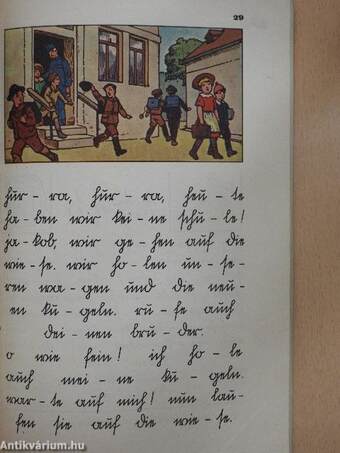 29
hur-ra, hur-ra, heu-te
ha-ben wir kei-ne schu-le!
ja-kob, wir ge-hen auf die
wie-se. wir ho-len un-se-
ren wa-gen und die neu-
en ku-geln. ru-fe auch
dei-nen bru-der.
o wie fein! ich ho-le
auch mei-ne ku-geln.
war-te auf mich! nun lau-
fen sie auf die wie-se.
Antikvárium.hu